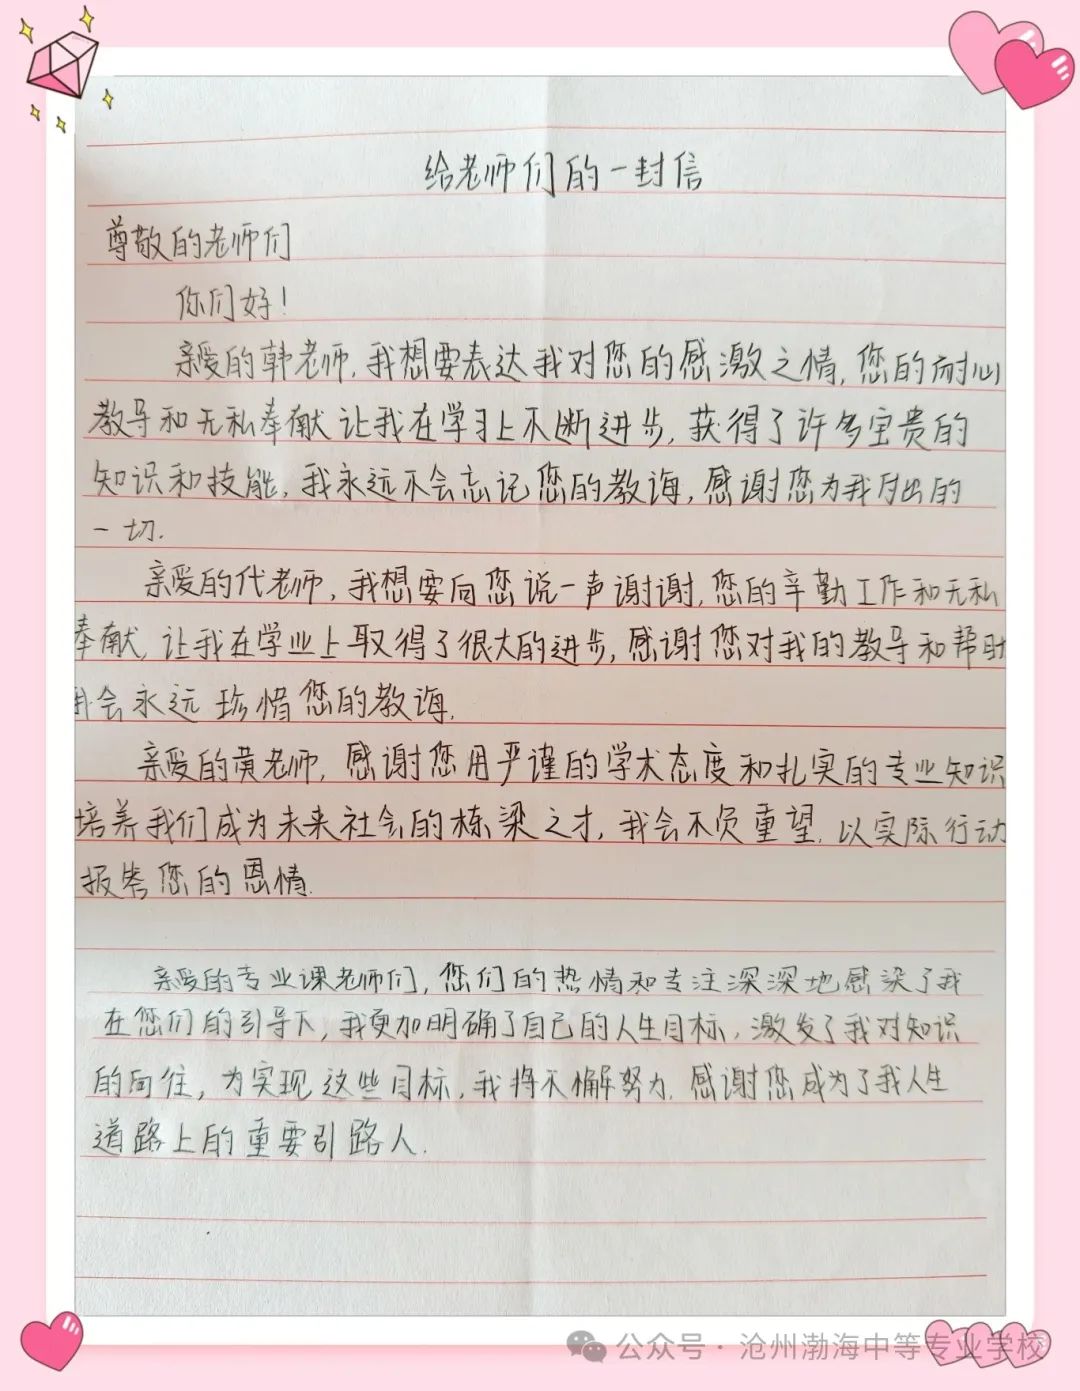 给老师们的一封信
尊敬的老师们
你们好!
亲爱的韩老师,我想要表达我对您的感激之情,您的耐心
教导和无私奉献让我在学习上不断进步,获得了许多宝贵的
知识和技能,我永远不会忘记您的教诲,感谢您为我付出的
一切.
亲爱的代老师,我想要向您说一声谢谢,您的辛勤工作和无私
奉献,让我在学业上取得了很大的进步,感谢您对我的教导和帮助
我会永远珍惜您的教诲.
亲爱的黄老师,感谢您用严谨的学术态度和扎实的专业知识
培养我们成为未来社会的栋梁之才,我会不负重望.以实际行动
报答您的恩情.
亲爱的专业课老师们,您们的热情和专注深深地感染了我
在您们的引导下,我更加明确了自己的人生目标,激发了我对知识
的向往,为实现这些目标,我将不懈努力.感谢您成为了我人生
道路上的重要引路人.
公众号·沧州渤海中等专业学校